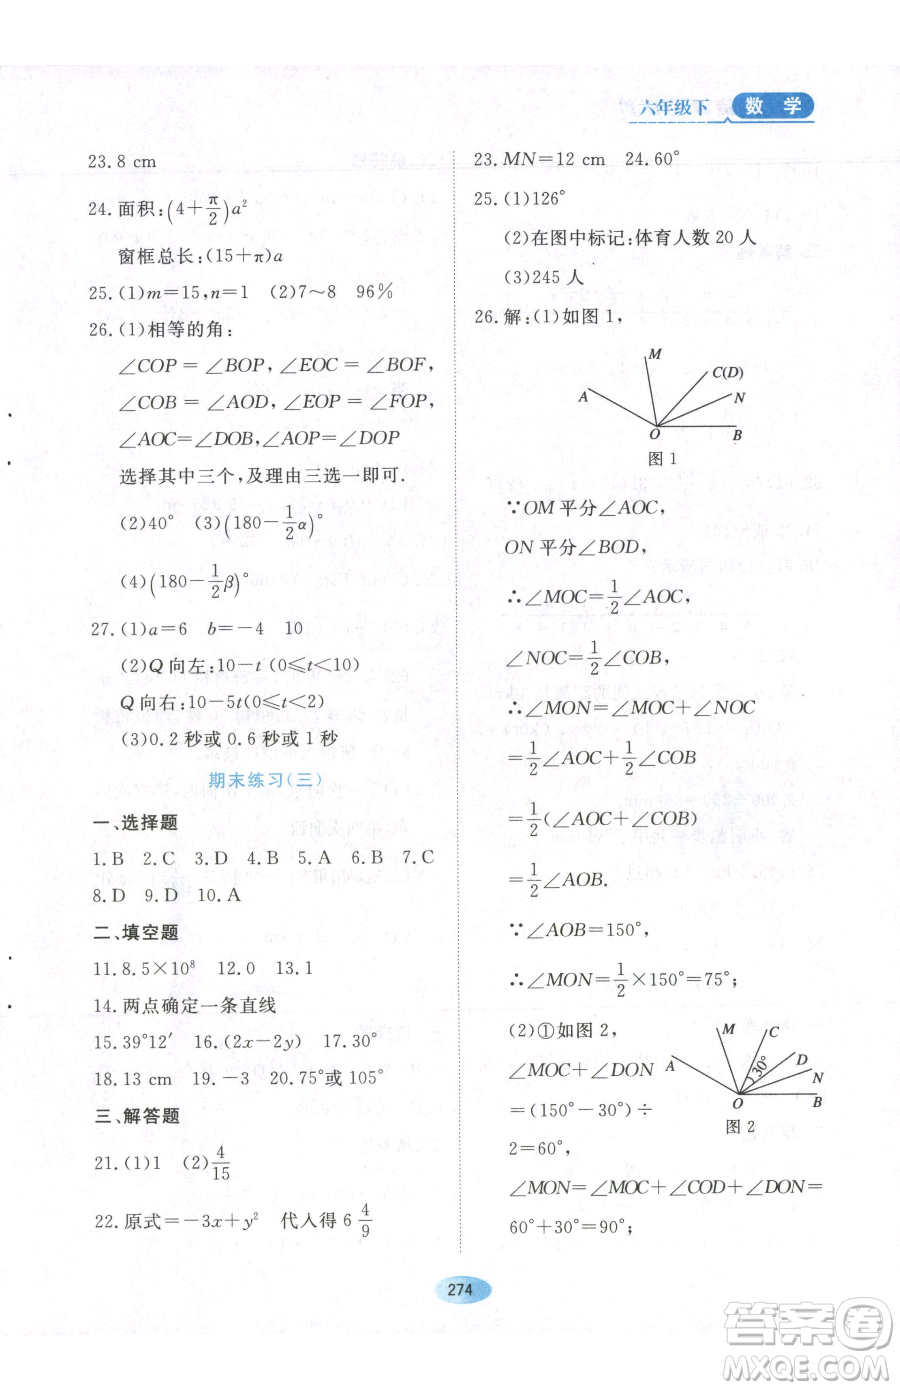 六年级下 数学
23.8 cm
24.面积:(4+π/2)a²
窗框总长:(15+π)a
25.(1)m=15,n=1 (2)7~8 96%
26.(1)相等的角:
∠COP=∠BOP,∠EOC=∠BOF
∠COB=∠AOD,∠EOP=∠FOP,
∠AOC=∠DOB,∠AOP=∠DOP
选择其中三个,及理由三选一即可.
(2)40° (3)(180-1/2α)°
(4)(180-1/2β)°
27.(1)a=6 b=-4 10
(2)Q向左:10-t(0≤t<10)
Q向右:10-5t(0≤t<2)
(3)0.2秒或0.6秒或1秒
期末练习(三)
一、选择题
1.B 2.C 3.D 4.B 5.A 6.B 7.C
8.D 9.D 10.A
二、填空题
11.8.5×10⁸ 12.0 13.1
14.两点确定一条直线
15.39°12′ 16.(2x-2y) 17.30°
18.13 cm 19.-3 20.75°或105°
三、解答题
21.(1)1 (2)4/15
22.原式=-3x+y² 代入得6 4/9
23.MN=12 cm 24.60°
25.(1)126°
(2)在图中标记:体育人数20人
(3)245人
26.解:(1)如图1,
M
C(D)
A
N
O
B
图1
∵OM平分∠AOC,
ON平分∠BOD,
∴∠MOC=1/2∠AOC,
∠NOC=1/2∠COB,
∴∠MON=∠MOC+∠NOC
=1/2∠AOC+1/2∠COB
=1/2(∠AOC+∠COB)
=1/2∠AOB.
∵∠AOB=150°,
∴∠MON=1/2×150°=75°;
(2)①如图2,
∠MOC+∠DON
=(150°-30°)÷
2=60°,
M
C
D
A
30°
N
O
B
图2
∠MON=∠MOC+∠COD+∠DON=
60°+30°=90°;
274
答案圈
MXQE.COM